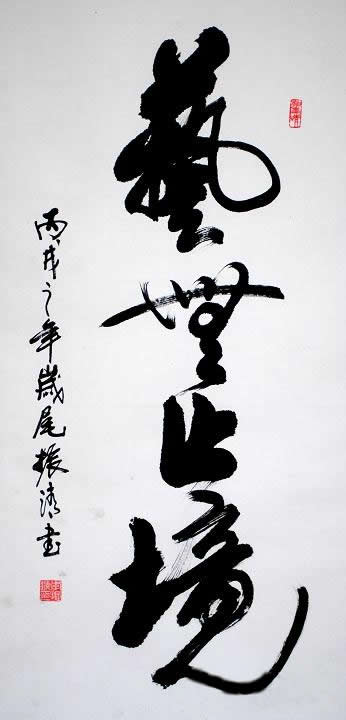 藝無止境
丙戌之年歲尾振濤書